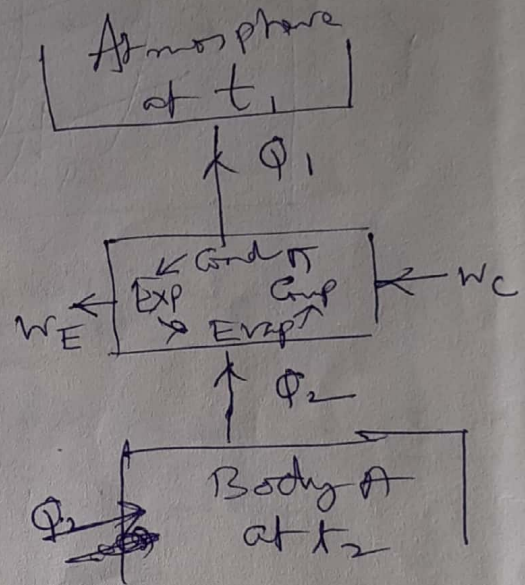 Atmosphere
at t₁
Q₁
Cond
Exp Comp
Evap
W_E
W_C
Q₂
Body A
at t₂
Q₂